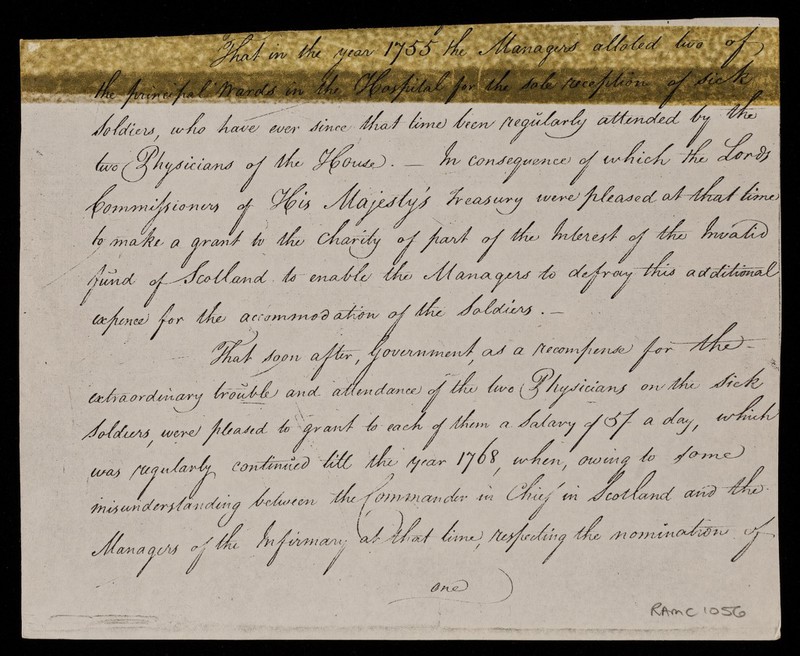 That in the year 1755 the Managers alloted two of
the principal Wards in the Hospital for the sole reception of sick
Soldiers, who have ever since that time been regularly attended by the
two Physicians of the House. — In consequence of which the Lords
Commissioners of His Majesty's Treasury were pleased at that time
to make a grant to the Charity of part of the Interest of the Invalid
fund of Scotland to enable the Managers to defray this additional
expence for the accommodation of the Soldiers. —
That soon after, Government, as a recompense for the
extraordinary trouble and attendance of the two Physicians on the Sick
Soldiers, were pleased to grant to each of them a Salary of 5/ a day, which
was regularly continued till the year 1768, when, owing to some
misunderstanding between the Commander in Chief in Scotland and the
Managers of the Infirmary at that time, respecting the nomination of
one
RAMC 1056